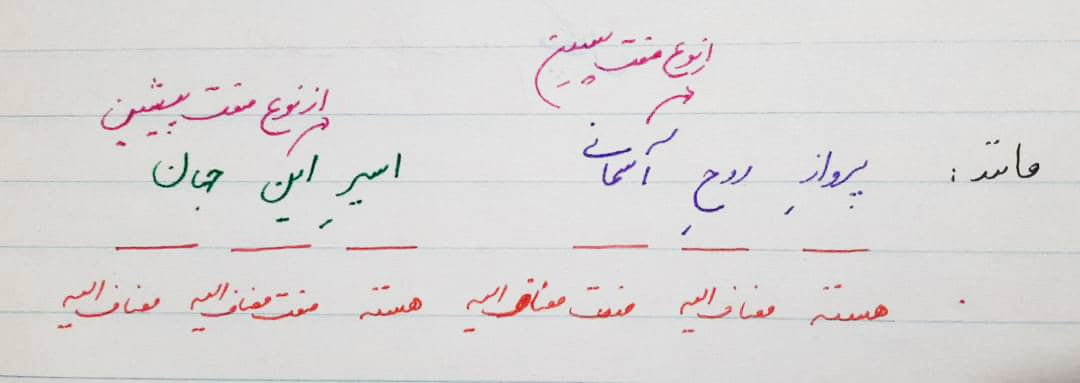 از نوع صفت پسین
از نوع صفت پیشین
مانند : پروازِ روحِ آسمانی اسیرِ این جهان
هسته مضاف الیه صفت مضاف الیه هسته صفت مضاف الیه مضاف الیه